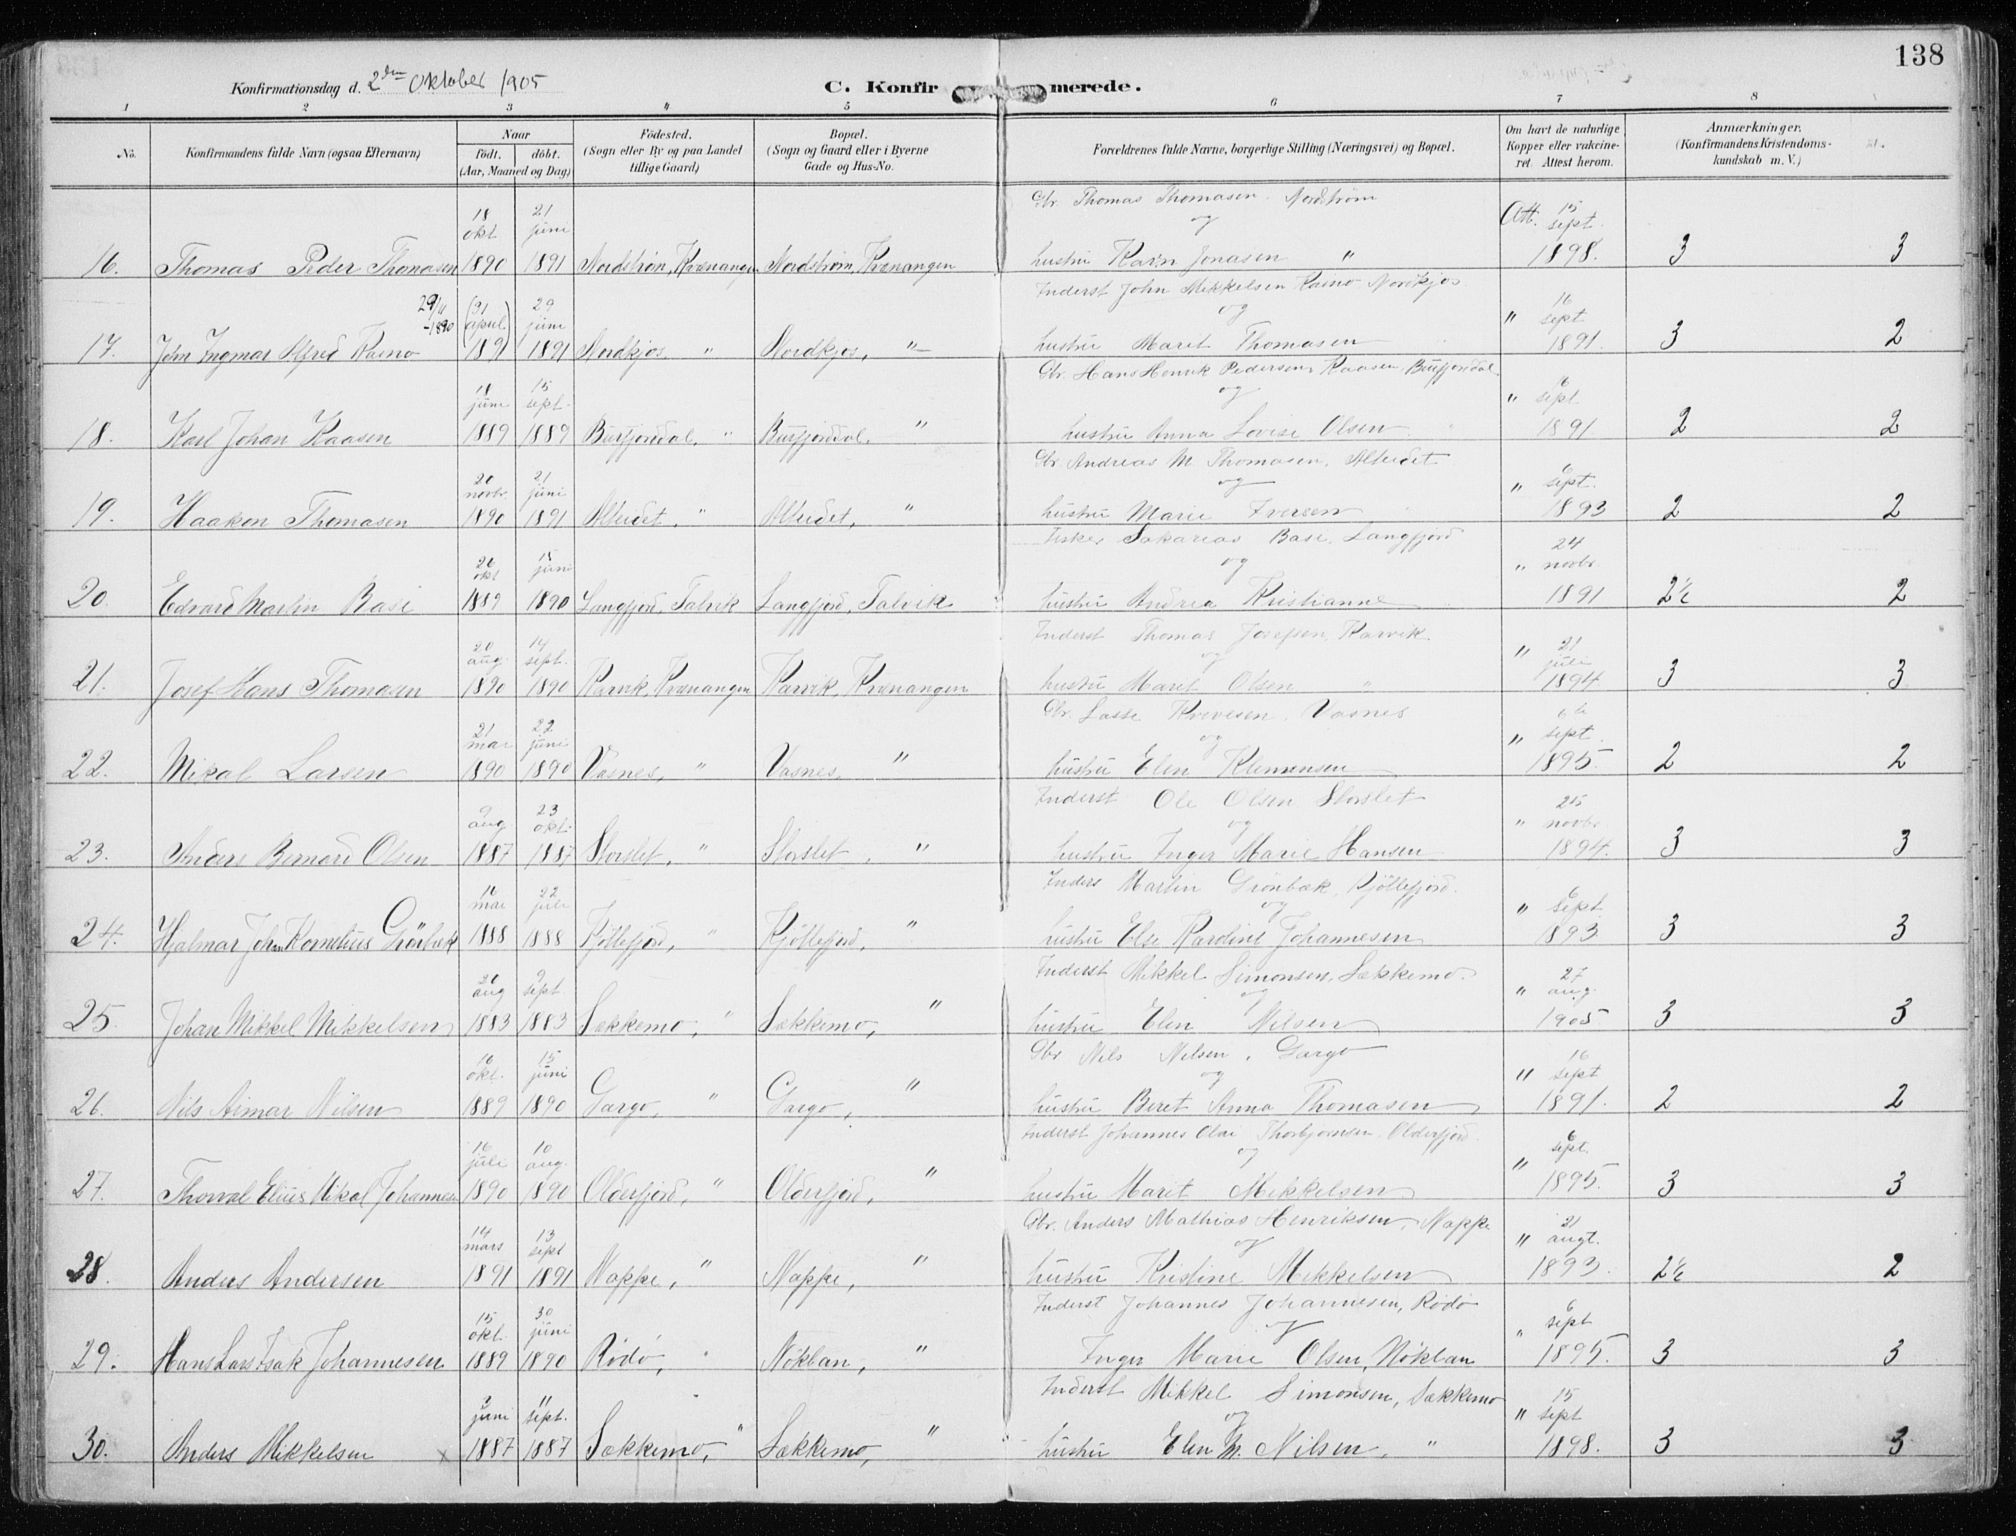 138
Konfirmationsdag d. 2den Oktober 1905
C. Konfirmerede.
1 2 3 4 5 6 7 8
No.
Konfirmandens fulde Navn (ogsaa Efternavn)
Naar
födt. döbt.
(Aar, Maaned og Dag)
Födested.
(Sogn eller By og paa Landet tillige Gaard)
Bopæl.
(Sogn og Gaard eller i Byerne Gade og Hus-No.
Forældrenes fulde Navne, borgerlige Stilling (Næringsvei) og Bopæl.
Om havt de naturlige Kopper eller vakcineret. Attest herom.
Anmærkninger.
(Konfirmandens Kristendomskundskab m. V.)
Gbr. Thomas Thomasen. Nordstrøm
18 okt 21 juni og Att. 15 sept
16. Thomas Peder Thomasen 1890 1891 Nordstrøm, Kvænangen Nordstrøm, Kvænangen hustru Karen Jonasen " 1898. 3 3
Inderst John Mikkelsen Raino Nordkjos
29/11 -1890 (31 april 29 juni og " 16 sept
17. John Ingmar Alfred Raino 1891) 1891 Nordkjos " Nordkjos, " hustru Maret Thomasen 1891. 3 2
Gbr. Hans Henrik Pedersen Kaasen, Burfjorddal
11 juni 15 sept. og " 16 sept
18. Karl Johan Kaasen 1889 1889 Burfjorddal, " Burfjorddal, " hustru Anna Lovise Olsen 1891 2 2
Gbr. Andreas M. Thomasen, Alteidet
20 novbr. 21 juni og " 6 sept.
19. Haakon Thomasen 1890 1891 Alteidet, " Alteidet, " hustru Marie Iversen 1893 2 2
Fisker Sakarias Basi, Langfjord
26 okt 15 juni og " 24 novbr.
20. Edvard Martin Basi 1889 1890 Langfjord, Talvik Langfjord, Talvik hustru Andrea Kristianne 1891 2½ 2
Inderst Thomas Josefsen, Karvik.
20 aug. 14 sept. og " 21 juli
21. Josef Hans Thomasen 1890 1890 Karvik, Kvænangen Karvik, Kvænangen hustru Maret Olsen " 1894 3 3
Gbr. Lasse Vasnes
21 mai 22 juni og " sept.
22. Mikal Larsen 1890 1890 Vasnes, " Vasnes, " hustru Elen Klemensen 1895. 2 2
Inderst Ole Olsen Storslet
9 aug 23 okt. og " 25 novbr
23. Anders Bernard Olsen 1887 1887 Storslet, " Storslet, " hustru Inger Marie Hansen 1894. 3 3
Inders Martin Grönbæk, Kjöllefjord.
16 mai 22 juli og " 6 sept.
24. Hjalmar Johan Kornelius Grönbæk 1888 1888 Kjöllefjord, " Kjöllefjord, " hustru Else Karoline Johannesen 1893. 3 3
Inderst Mikkel Simonsen, Sækkemo.
26 aug 9 sept. og " 27 aug.
25. Johan Mikkel Mikkelsen 1883 1883 Sækkemo, " Sækkemo, " hustru Elen Nilsen 1905 3 3
Gbr Nils Nilsen, Gargo
16 okt. 15 juni og " 16 sept
26. Nils Aimar Nilsen 1889 1890 Gargo, " Gargo, " hustru Beret Anna Thomasen 1891. 2 2
Inderst Johannes Olai Thorbjørnsen, Olderfjord.
16 juli 10 aug. og " 6 sept.
27. Thorval Elius Mikal Johannesen 1890 1890 Olderfjord, " Olderfjord, " hustru Maret Mikkelsen 1895. 3 3
Gbr. Anders Mathias Henriksen, Nappe
14 mars 13 sept og " 21 augt.
28. Anders Andersen 1891 1891 Nappe, " Nappe, " hustru Kristine Mikkelsen 1893. 2½ 2
Inderst Johannes Johannesen, Rödö
15 okt. 30 juni og " 6 sept
29. Hans Lars Isak Johannesen 1889 1890 Rödö, " Nökban, " Inger Marie Olsen, Nökban 1895. 3 3
Inderst Mikkel Simonsen, Sækkemo
juni 11 sept. og " 15 sept
30. Anders Mikkelsen 1887 1887 Sækkemo, " Sækkemo, " hustru Elen M. Nilsen, " 1898. 3 3